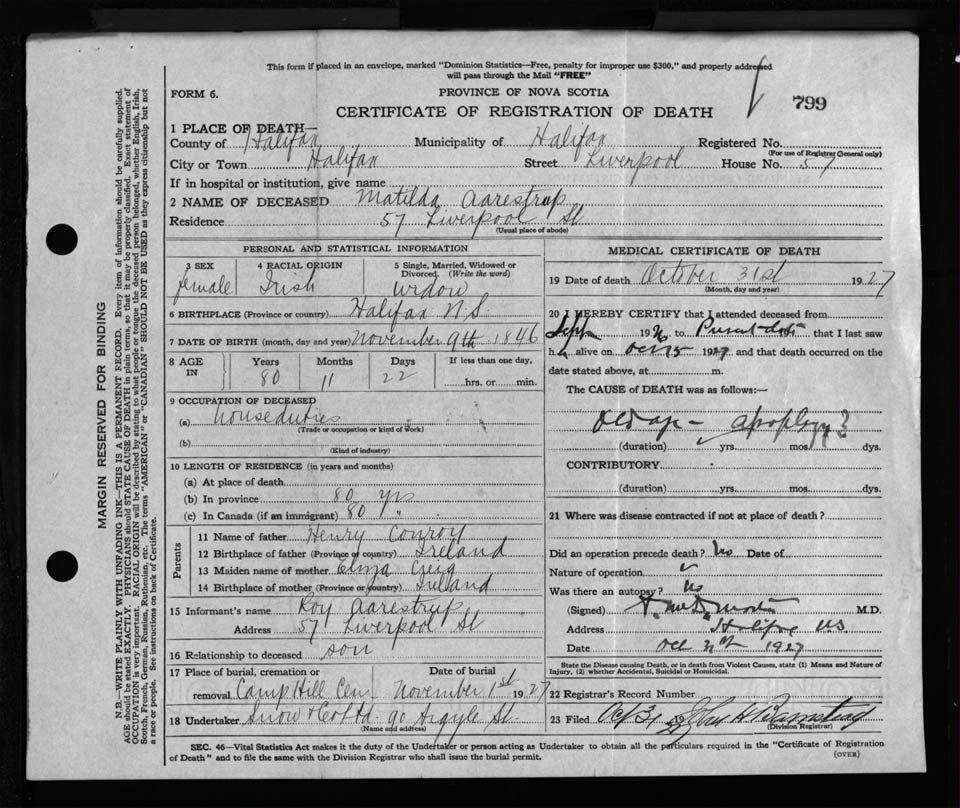 This form if placed in an envelope, marked "Dominion Statistics—Free, penalty for improper use $300," and properly addressed
will pass through the Mail "FREE"
FORM 6.
PROVINCE OF NOVA SCOTIA
799
CERTIFICATE OF REGISTRATION OF DEATH
1 PLACE OF DEATH—
County of Halifax Municipality of Halifax Registered No.
(For use of Registrar General only)
City or Town Halifax Street Liverpool House No. 57
If in hospital or institution, give name
2 NAME OF DECEASED Matilda Aarestrup
Residence 57 Liverpool St
(Usual place of abode)
PERSONAL AND STATISTICAL INFORMATION
3 SEX 4 RACIAL ORIGIN 5 Single, Married, Widowed or
Divorced. (Write the word)
female Irish Widow
6 BIRTHPLACE (Province or country) Halifax N S
7 DATE OF BIRTH (month, day and year) November 9th 1846
8 AGE IN Years Months Days If less than one day,
80 11 22 hrs. or min.
9 OCCUPATION OF DECEASED
(a) House duties
(Trade or occupation or kind of work)
(b)
(Kind of industry)
10 LENGTH OF RESIDENCE (in years and months)
(a) At place of death
(b) In province 80 yrs
(c) In Canada (if an immigrant) 80 "
Parents
11 Name of father Henry Conroy
12 Birthplace of father (Province or country) Ireland
13 Maiden name of mother Eliza Creig
14 Birthplace of mother (Province or country) Ireland
15 Informant's name Roy Aarestrup
Address 57 Liverpool St
16 Relationship to deceased son
17 Place of burial, cremation or Date of burial
removal Camp Hill Cem November 1st 1927
18 Undertaker Snow & Co Ltd. 90 Argyle St
(Name and address)
MEDICAL CERTIFICATE OF DEATH
19 Date of death October 31st 1927
(Month, day and year)
20 I HEREBY CERTIFY that I attended deceased from
Sept 1926 to Present date that I last saw
h er alive on Oct 25 1927 and that death occurred on the
date stated above, at m.
The CAUSE of DEATH was as follows:
Old age - apoplexy?
(duration) yrs. mos. dys.
CONTRIBUTORY
(duration) yrs. mos. dys.
21 Where was disease contracted if not at place of death?
Did an operation precede death? No Date of
Nature of operation
Was there an autopsy? No
(Signed) M.D.
Address Halifax N.S.
Date Oct 31st 1927
State the Disease causing Death, or in death from Violent Causes, state (1) Means and Nature of
Injury, (2) whether Accidental, Suicidal or Homicidal.
22 Registrar's Record Number
23 Filed Oct 31 1927
(Division Registrar)
SEC. 46—Vital Statistics Act makes it the duty of the Undertaker or person acting as Undertaker to obtain all the particulars required in the "Certificate of Registration
of Death" and to file the same with the Division Registrar who shall issue the burial permit.
(OVER)
MARGIN RESERVED FOR BINDING
N.B.—WRITE PLAINLY WITH UNFADING INK—THIS IS A PERMANENT RECORD. Every item of information should be carefully supplied.
AGE should be stated EXACTLY. PHYSICIANS should STATE CAUSE OF DEATH in plain terms, so that it may be properly classified. Exact statement of
OCCUPATION is very important. RACIAL ORIGIN will be described by stating to what people or tongue the deceased person belonged, whether English, Irish,
Scotch, French, German, Russian, Ruthenian, etc. The terms "AMERICAN" or "CANADIAN" SHOULD NOT BE USED as they express citizenship but not
a race or people. See instructions on back of Certificate.